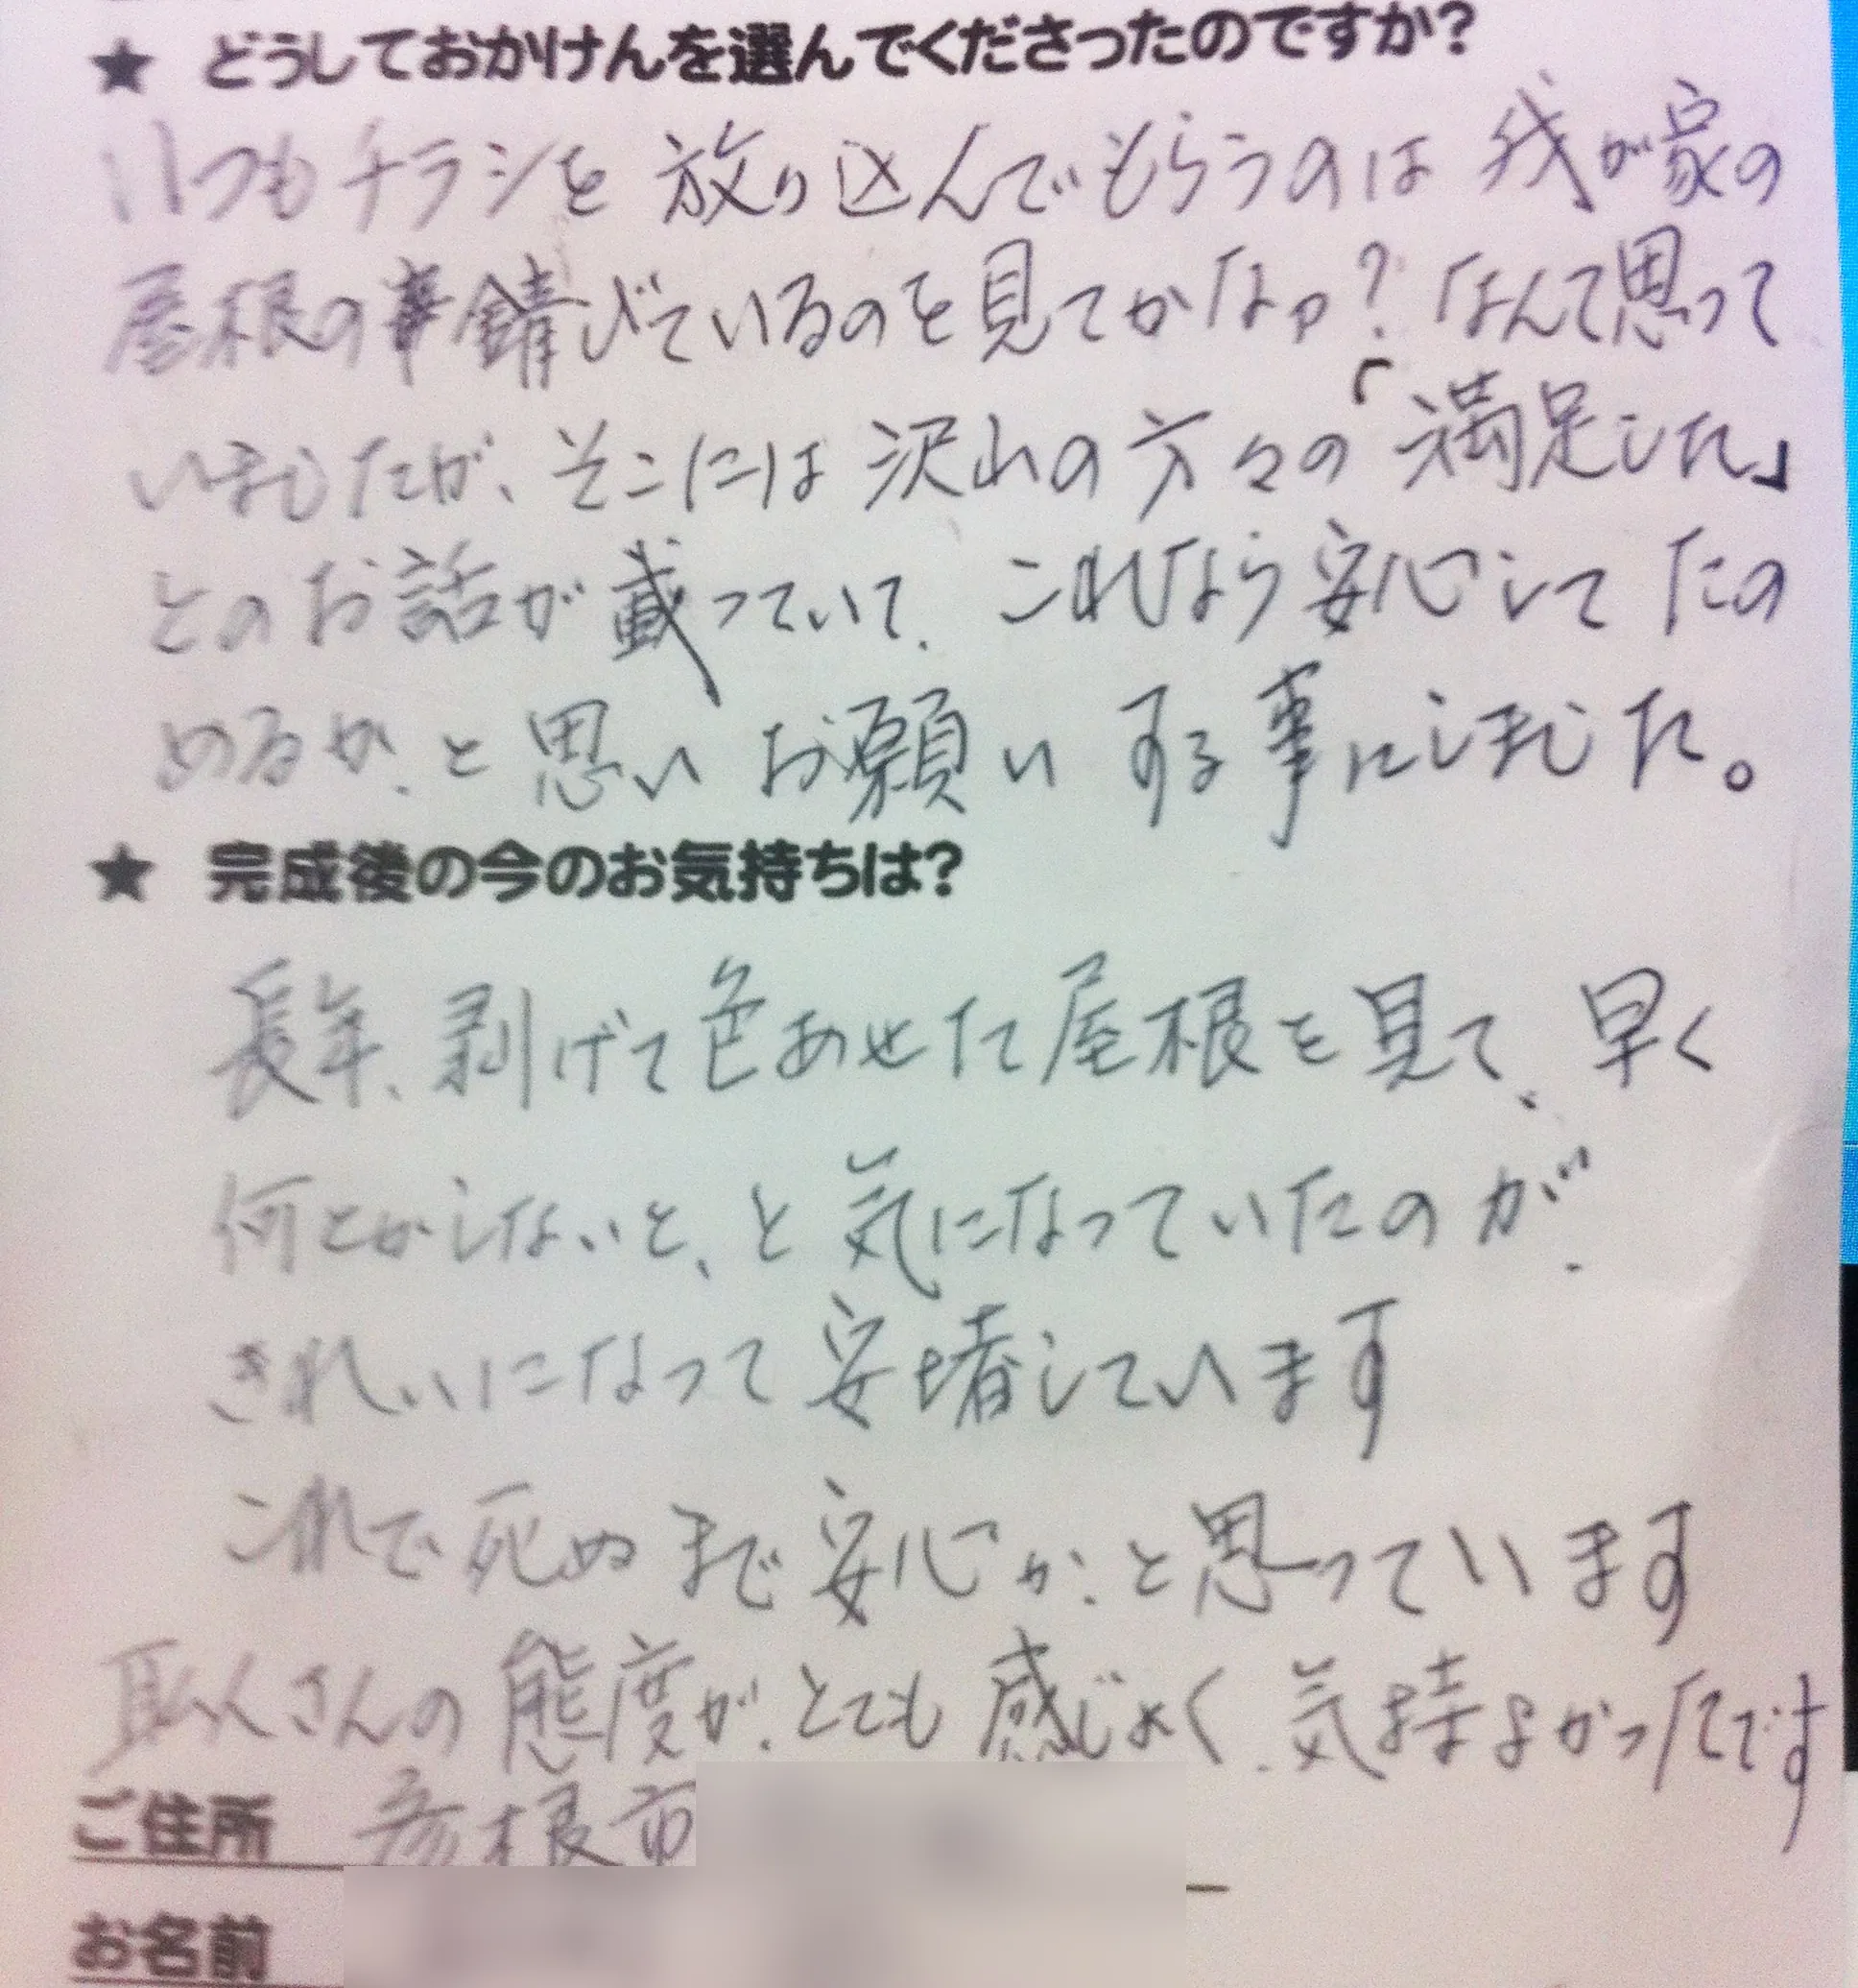 ★ どうしておかけんを選んでくださったのですか?
いつもチラシを放り込んでもらうのは我が家の
屋根の錆びているのを見てかなァ?なんて思って
いましたが、そこには沢山の方々の「満足した」
とのお話が載っていて、これなら安心してたの
めるか、と思いお願いする事にしました。
★ 完成後の今のお気持ちは?
長年、剥げて色あせた屋根を見て、早く
何とかしないと、と気になっていたのが、
きれいになって安堵しています
これで死ぬまで安心か、と思っています
職人さんの態度が、とても感じよく、気持よかったです
ご住所 彦根市
お名前